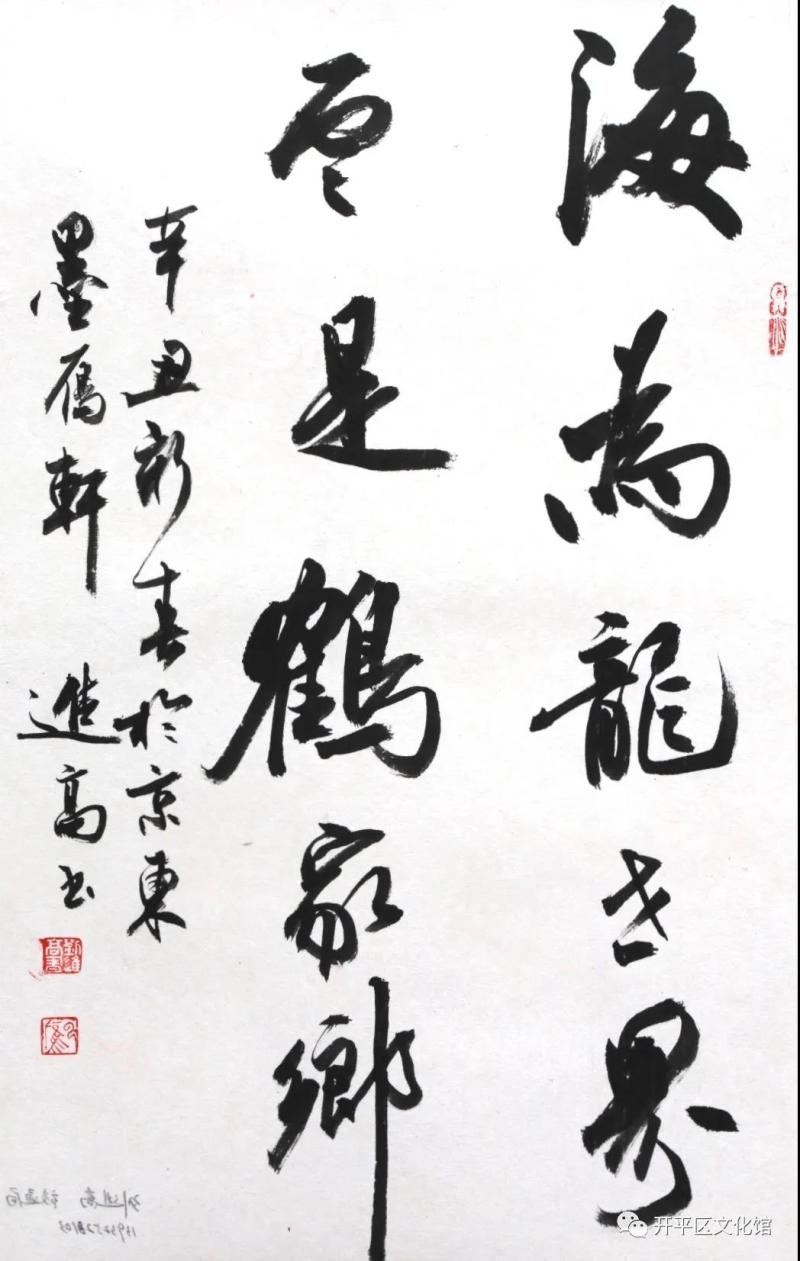 海為龍世界
雲是鶴家鄉
辛丑新春於京東
墨雁軒 進高书
开平区文化馆